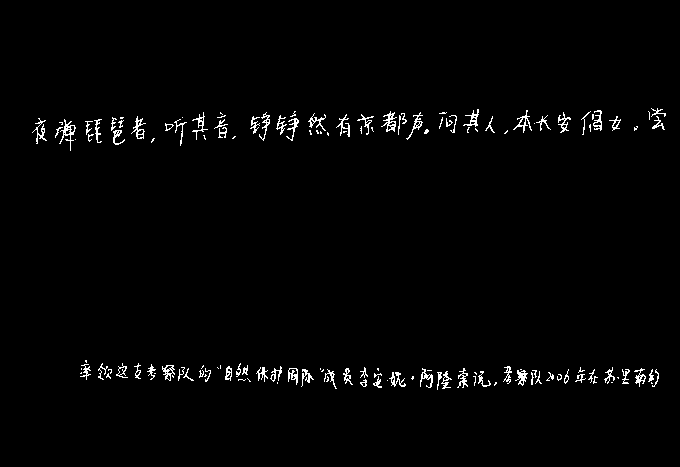 夜弹琵琶者,听其音,铮铮然有京都声。问其人,本长安倡女。尝
率领这支考察队的“自然保护国际”成员李安妮·阿隆索说,考察队2006年在苏里南的